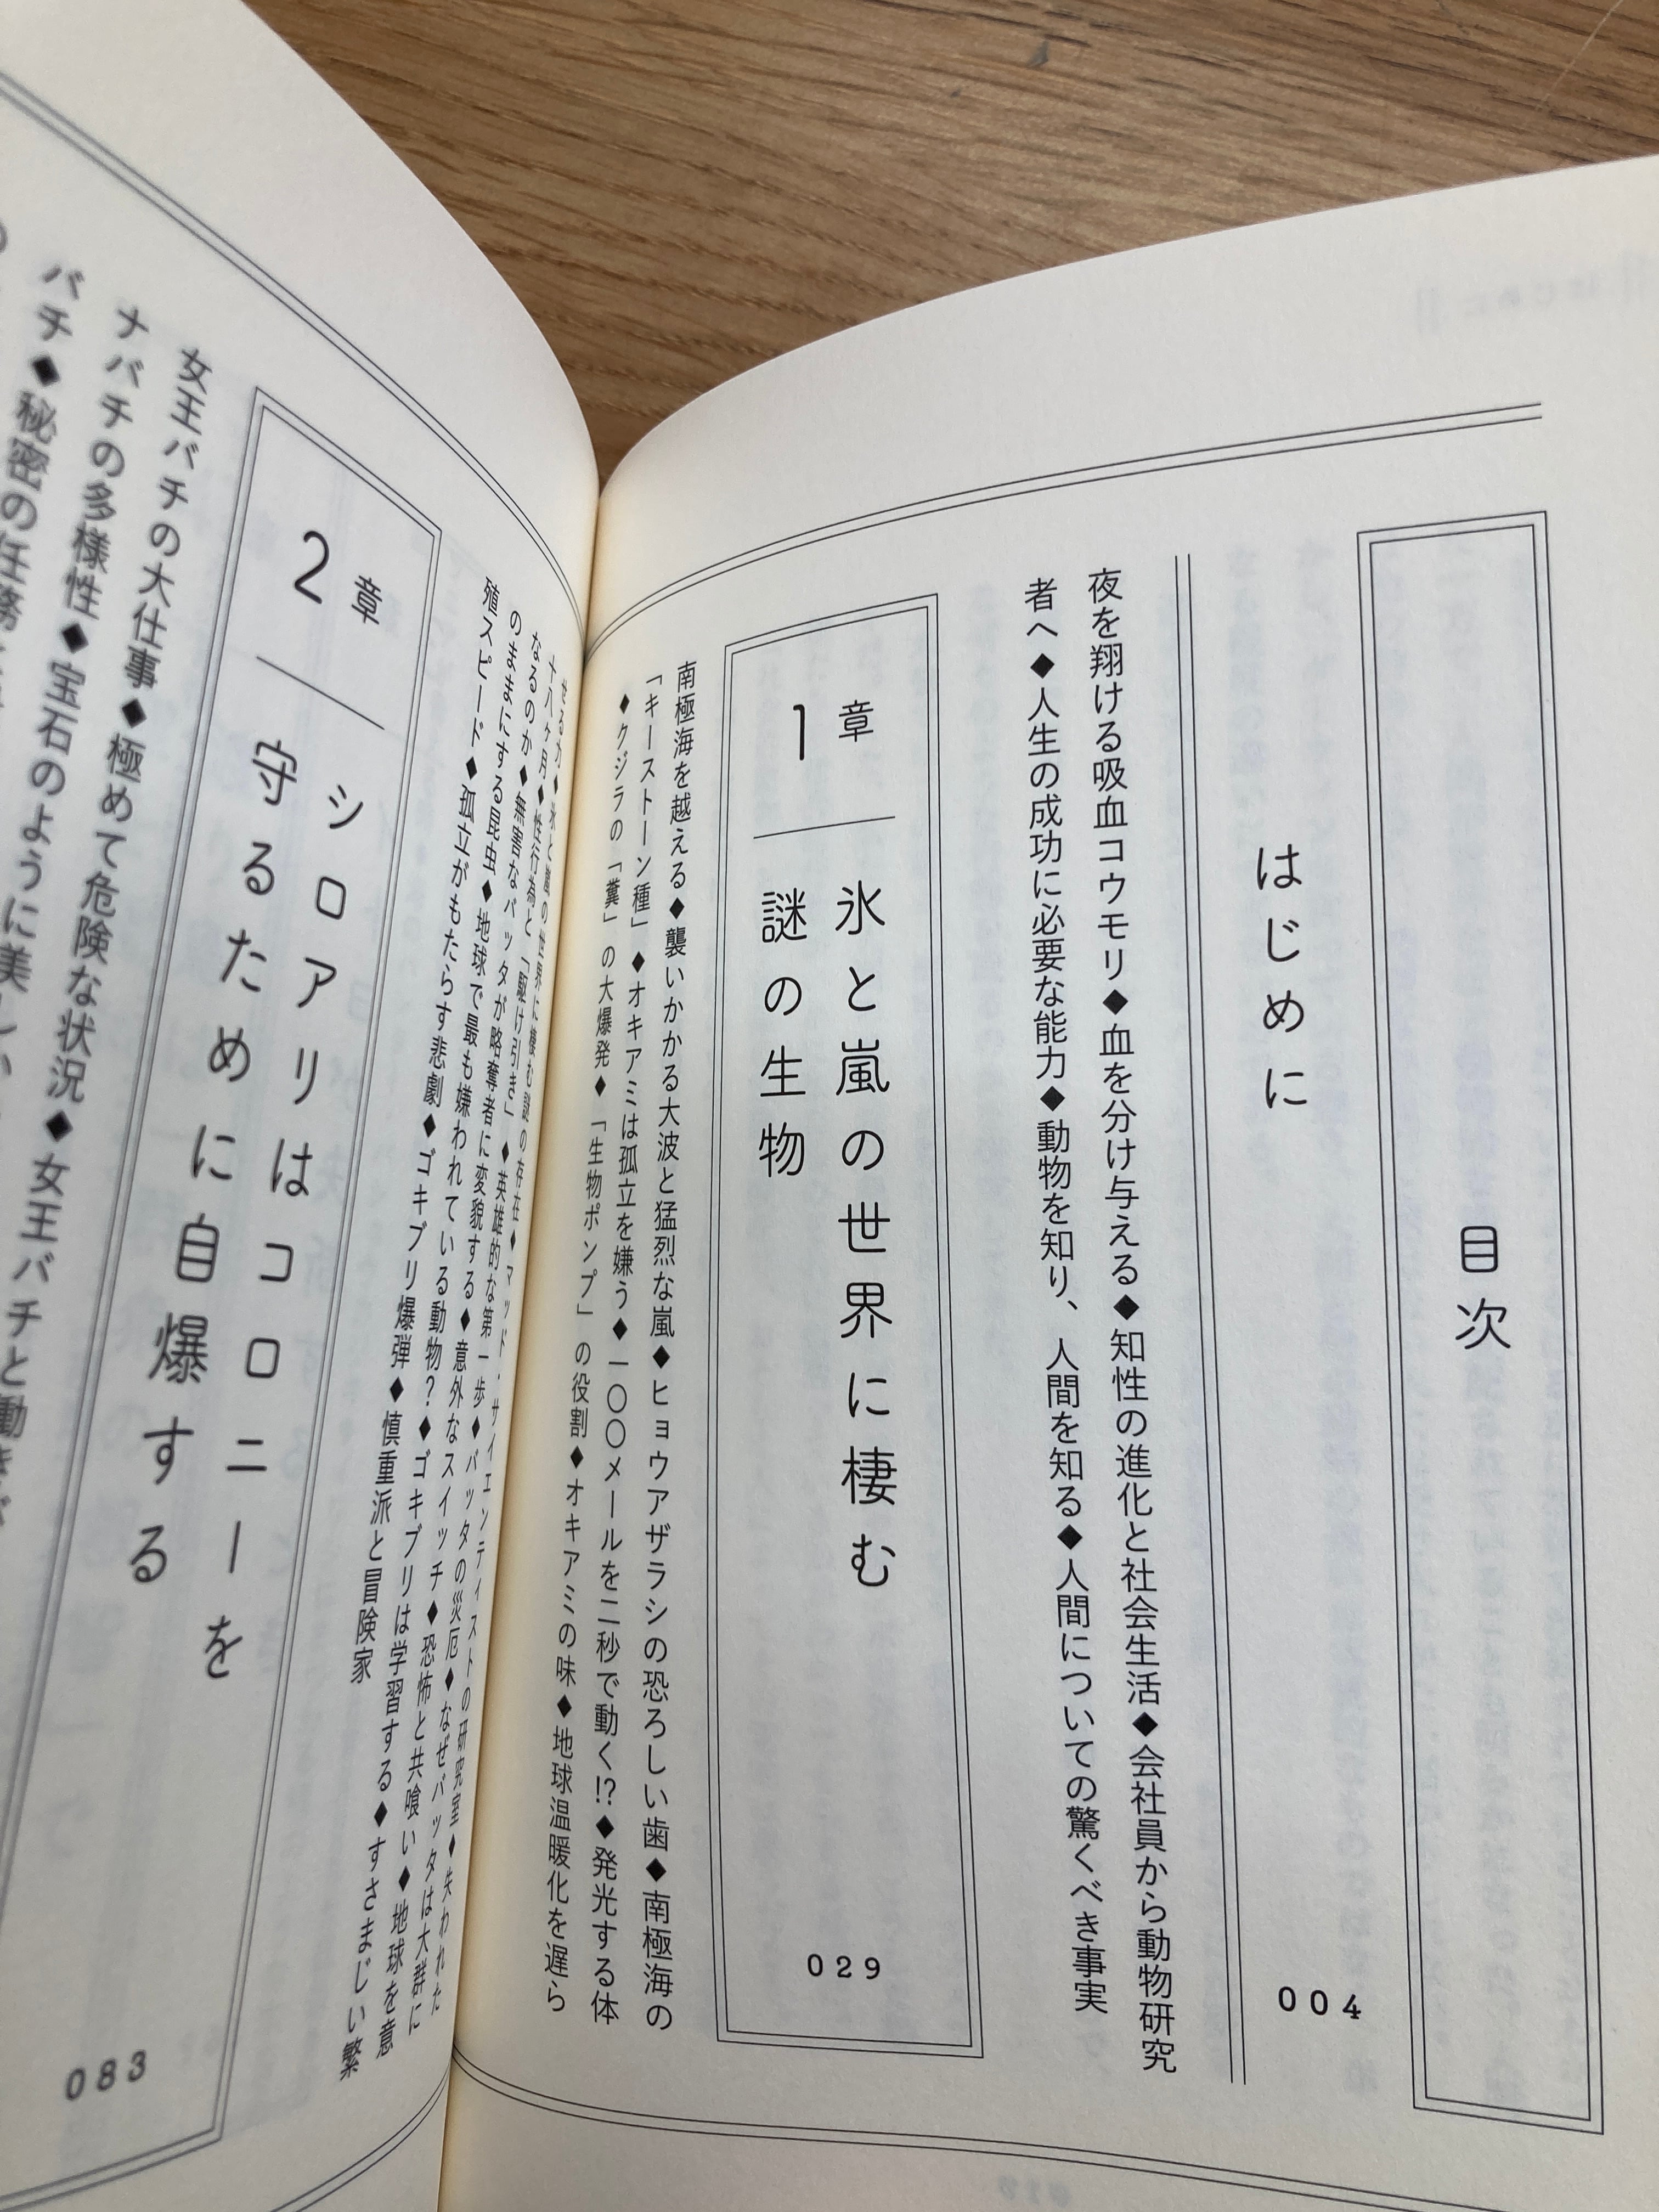 目次
はじめに
004
夜を翔ける吸血コウモリ◆血を分け与える◆知性の進化と社会生活◆会社員から動物研究
者へ◆人生の成功に必要な能力◆動物を知り、人間を知る◆人間についての驚くべき事実
1章
氷と嵐の世界に棲む
謎の生物
029
南極海を越える◆襲いかかる大波と猛烈な嵐◆ヒョウアザラシの恐ろしい歯◆南極海の
「キーストーン種」◆オキアミは孤立を嫌う◆一〇〇メールを二秒で動く!?◆発光する体
◆クジラの「糞」の大爆発◆「生物ポンプ」の役割◆オキアミの味◆地球温暖化を遅ら
せるか◆氷と嵐の世界に棲む謎の存在◆マッド・サイエンティストの研究室◆失われた
十八ヶ月◆性行為と「駆け引き」◆英雄的な第一歩◆バッタの災厄◆なぜバッタは大群に
なるのか◆無害なバッタが略奪者に変貌する◆意外なスイッチ◆恐怖と共喰い◆地球を意
のままにする昆虫◆地球で最も嫌われている動物?◆ゴキブリは学習する◆すさまじい繁
殖スピード◆孤立がもたらす悲劇◆ゴキブリ爆弾◆慎重派と冒険家
2章
シロアリはコロニーを
守るために自爆する
083
女王バチの大仕事◆極めて危険な状況◆女王バチと働き
ナバチの多様性◆宝石のように美しい
バチ◆秘密の任務